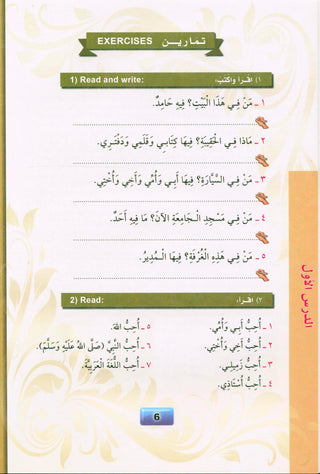 EXERCISES تمارين
1) Read and write: ١) اقرأ واكتب:
١ - مَنْ فِي هَذَا الْبَيْتِ؟ فِيهِ حَامِدٌ.
٢ - مَاذَا فِي الْحَقِيبَةِ؟ فِيهَا كِتَابِي وَقَلَمِي وَدَفْتَرِي.
٣ - مَنْ فِي السَّيَّارَةِ؟ فِيهَا أَبِي وَأُمِّي وَأَخِي وَأُخْتِي.
٤ - مَنْ فِي مَسْجِدِ الْجَامِعَةِ الْآنَ؟ مَا فِيهِ أَحَدٌ.
٥ - مَنْ فِي هَذِهِ الْغُرْفَةِ؟ فِيهَا الْمُدِيرُ.
2) Read: ٢) اقرأ:
١ - أُحِبُّ أَبِي وَأُمِّي.
٢ - أُحِبُّ أَخِي وَأُخْتِي.
٣ - أُحِبُّ زَمِيلِي.
٤ - أُحِبُّ أُسْتَاذِي.
٥ - أُحِبُّ اللهَ.
٦ - أُحِبُّ النَّبِيَّ (صَلَّى اللهُ عَلَيْهِ وَسَلَّمَ).
٧ - أُحِبُّ اللُّغَةَ الْعَرَبِيَّةَ.
الدرس الأول
6